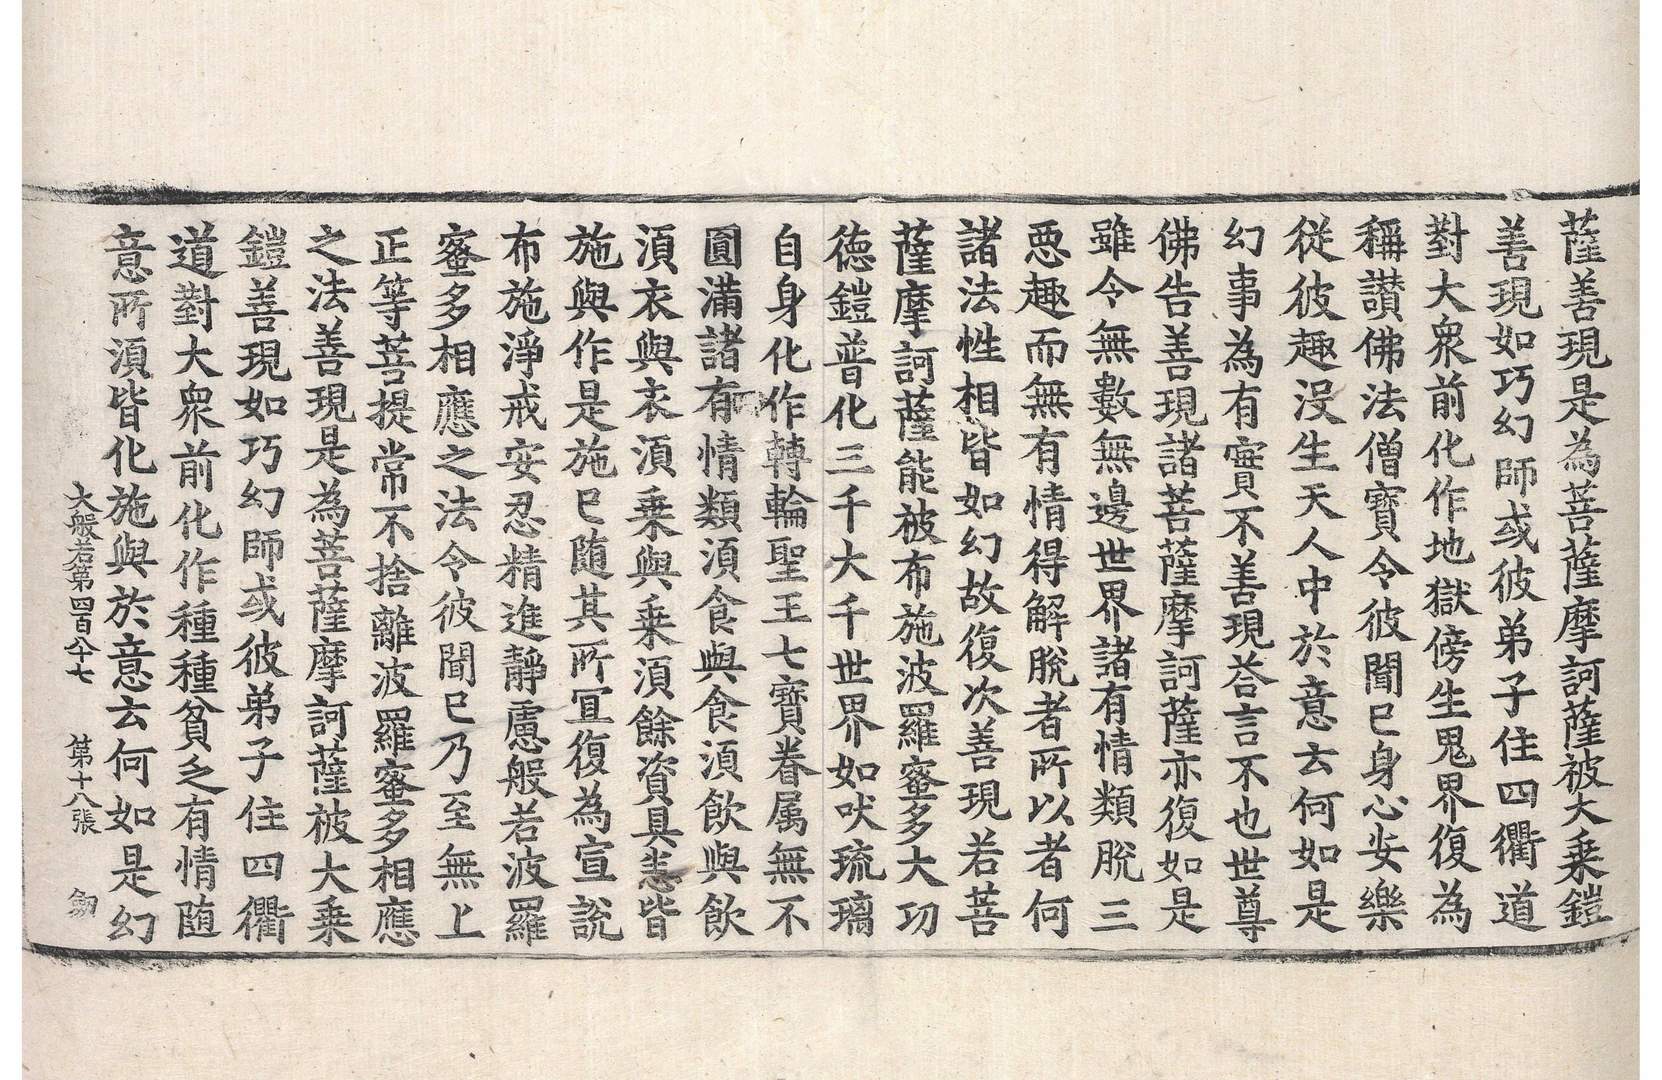 薩善現是為菩薩摩訶薩被大乘鎧
善現如巧幻師或彼弟子住四衢道
對大衆前化作地獄傍生鬼界復為
稱讚佛法僧寶令彼聞已身心安樂
從彼趣没生天人中於意云何如是
幻事為有實不善現荅言不也世尊
佛告善現諸菩薩摩訶薩亦復如是
雖令無數無邊世界諸有情類脫三
惡趣而無有情得解脫者所以者何
諸法性相皆如幻故復次善現若菩
薩摩訶薩能被布施波羅蜜多大功
德鎧普化三千大千世界如吠琉璃
自身化作轉輪聖王七寶眷属無不
圓滿諸有情類湏食與食湏飲與飲
湏衣與衣湏乘與乘湏餘資具悉皆
施與作是施已随其所冝復為宣說
布施淨戒安忍精進靜慮般若波羅
蜜多相應之法令彼聞已乃至無上
正等菩提常不捨離波羅蜜多相應
之法善現是為菩薩摩訶薩被大乘
鎧善現如巧幻師或彼弟子住四衢
道對大衆前化作種種貧乏有情随
意所湏皆化施與於意云何如是幻
大般若第四百八十七 第十八張 劒